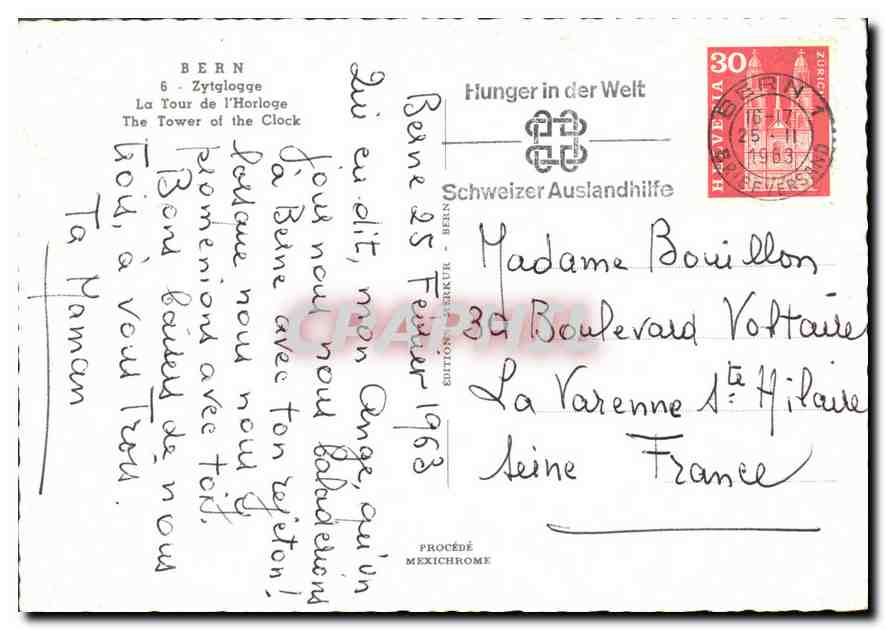 BERN
6 - Zytglogge
La Tour de l'Horloge
The Tower of the Clock
Berne 25 Février 1963
Qui eu dit, mon Ange, qu'un
jour nous nous baladerions
à Berne avec ton rejeton!
lorsque nous nous y
promenions avec toi.
Bons baisers de nous
trois, à vous Trois.
Ta Maman
ÉDITION MERKUR - BERN
PROCÉDÉ
MEXICHROME
Hunger in der Welt
Schweizer Auslandhilfe
30
HELVETIA
ZÜRICH
BERN 1
16-17
25 · II
1963
BRIEFVERSAND
Madame Bouillon
39 Boulevard Voltaire
La Varenne Ste Hilaire
Seine France
CPAPHIL